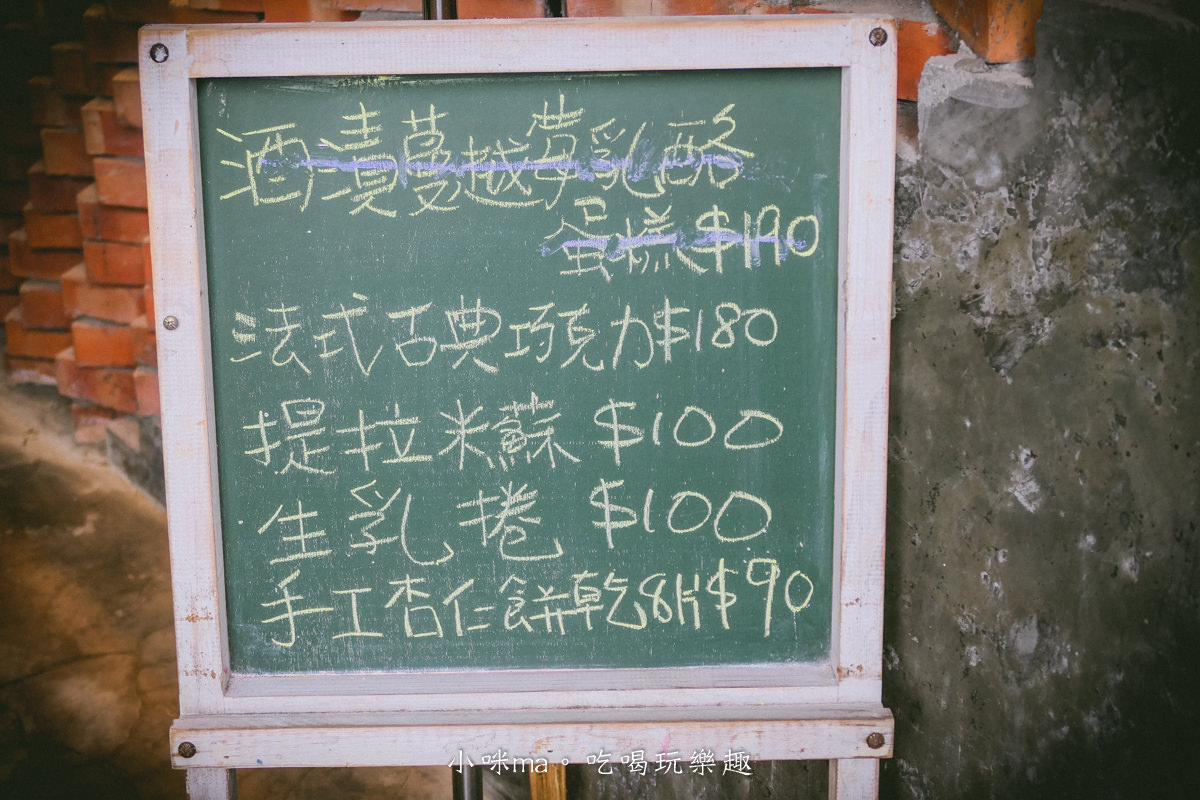 酒漬蔓越莓乳酪
蛋糕$190
法式古典巧克力$180
提拉米蘇 $100
生乳捲 $100
手工杏仁餅乾8片$90
小咪ma。吃喝玩樂趣